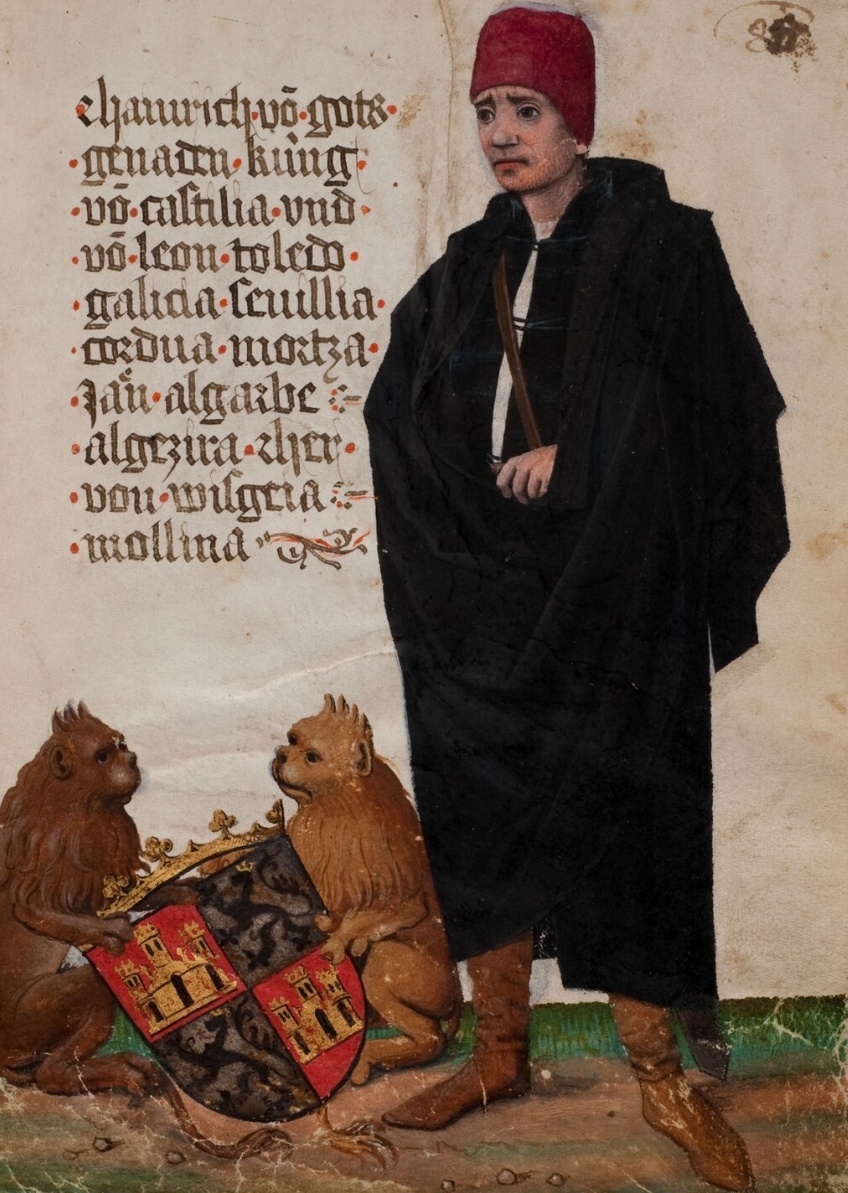 ·chainrich·vō·gots·
·genaden·küng·
·vō·castilia·vnd·
·vō·leon·toledo·
·galicia·seuillia·
·cordua·mortza·
·Jaen·algarbe
·algezira·vnd·her·
·von·wisgeia
·mollina